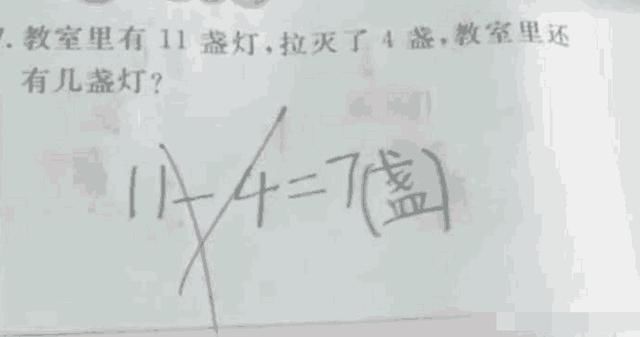 7. 教室里有 11 盏灯，拉灭了 4 盏，教室里还
有几盏灯？
11-4=7(盏)